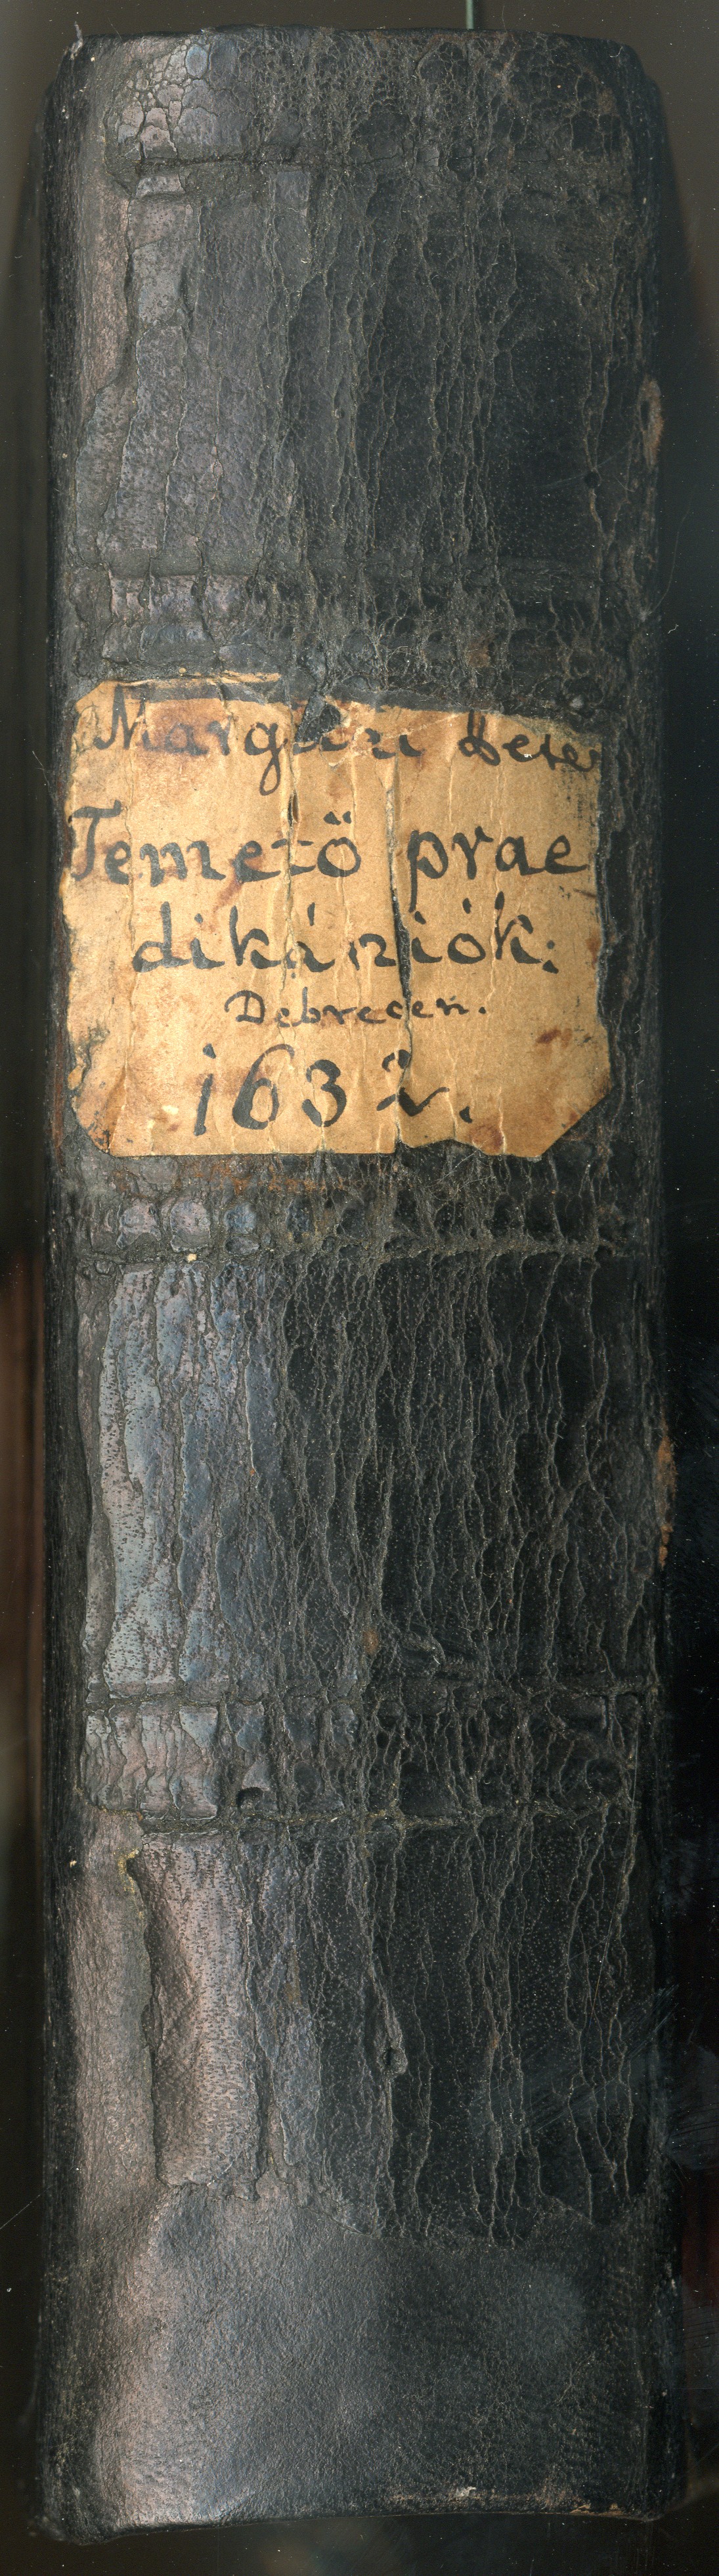 Margitai Peter
Temető prae
dikácziók:
Debrecen.
1632.